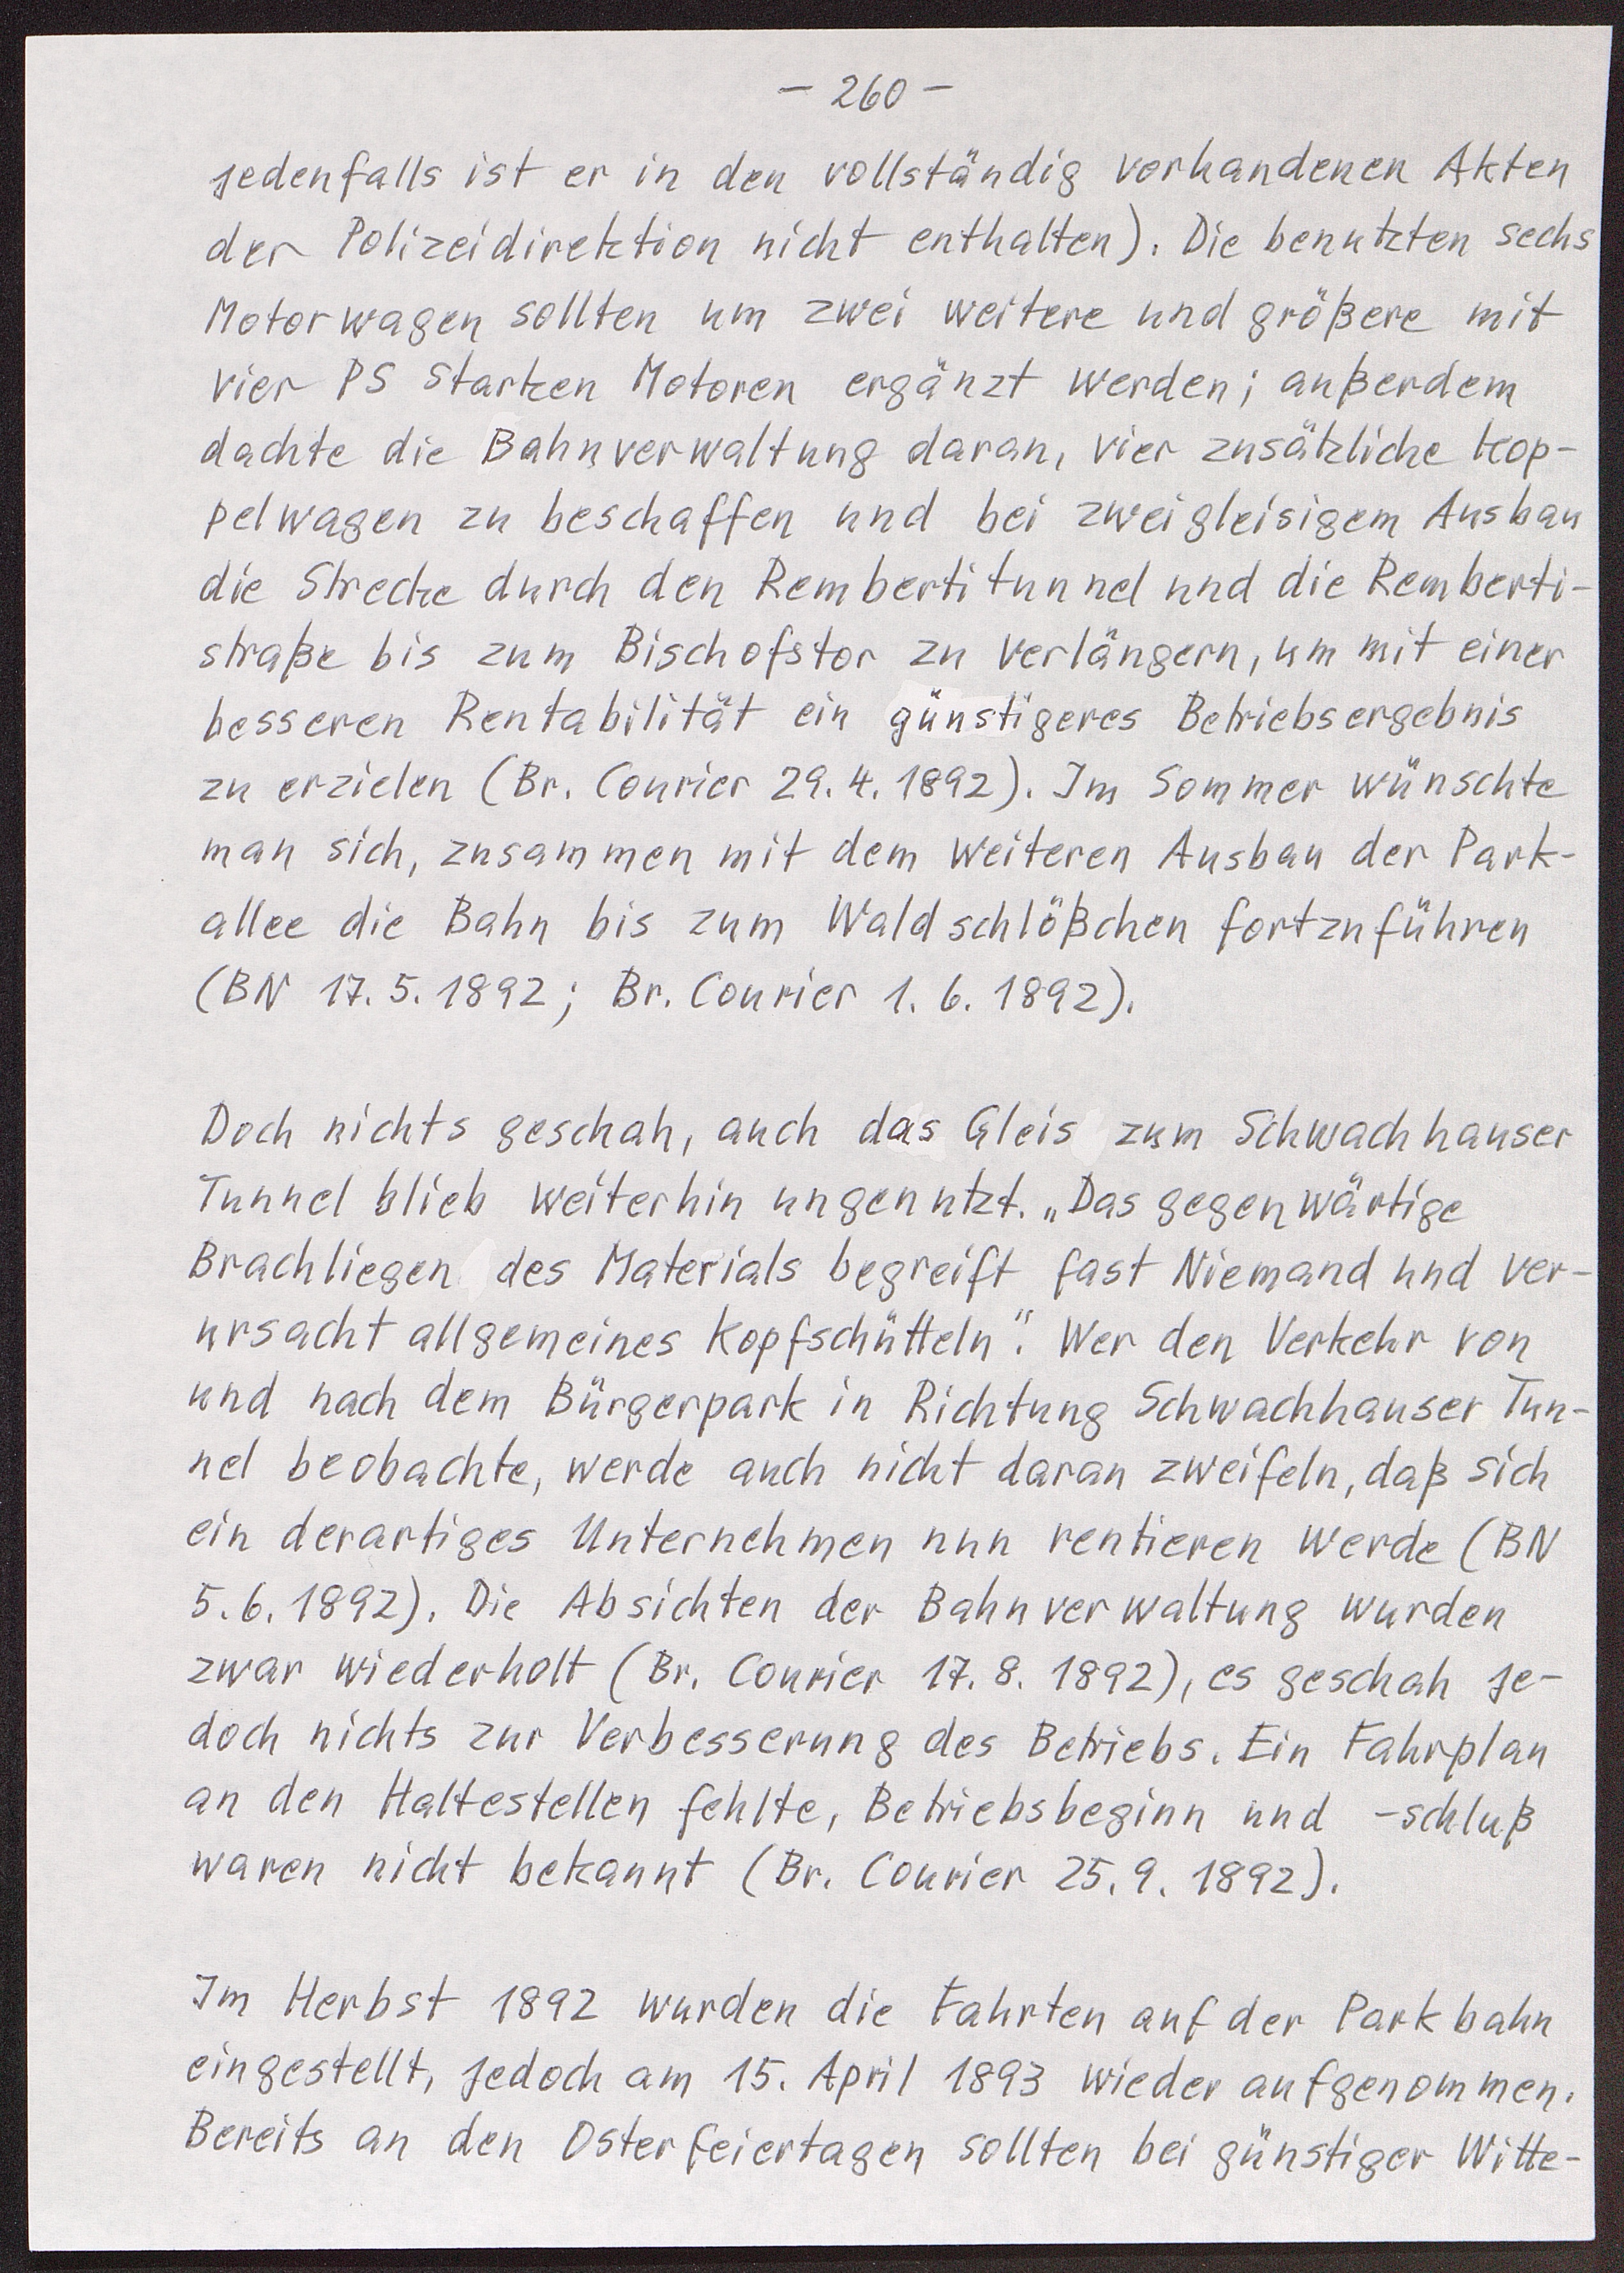 – 260 –
jedenfalls ist er in den vollständig vorhandenen Akten
der Polizeidirektion nicht enthalten). Die benutzten sechs
Motorwagen sollten um zwei weitere und größere mit
vier PS starken Motoren ergänzt werden; außerdem
dachte die Bahnverwaltung daran, vier zusätzliche Kop-
pelwagen zu beschaffen und bei zweigleisigem Ausbau
die Strecke durch den Rembertitunnel und die Remberti-
straße bis zum Bischofstor zu verlängern, um mit einer
besseren Rentabilität ein günstigeres Betriebsergebnis
zu erzielen (Br. Courier 29. 4. 1892). Im Sommer wünschte
man sich, zusammen mit dem weiteren Ausbau der Park-
allee die Bahn bis zum Waldschlößchen fortzuführen
(BN 17. 5. 1892; Br. Courier 1. 6. 1892).
Doch nichts geschah, auch das Gleis zum Schwachhauser
Tunnel blieb weiterhin ungenutzt. „Das gegenwärtige
Brachliegen des Materials begreift fast Niemand und ver-
ursacht allgemeines Kopfschütteln“. Wer den Verkehr von
und nach dem Bürgerpark in Richtung Schwachhauser Tun-
nel beobachte, werde auch nicht daran zweifeln, daß sich
ein derartiges Unternehmen nun rentieren werde (BN
5. 6. 1892). Die Absichten der Bahnverwaltung wurden
zwar wiederholt (Br. Courier 17. 8. 1892), es geschah je-
doch nichts zur Verbesserung des Betriebs. Ein Fahrplan
an den Haltestellen fehlte, Betriebsbeginn und -schluß
waren nicht bekannt (Br. Courier 25. 9. 1892).
Im Herbst 1892 wurden die Fahrten auf der Parkbahn
eingestellt, jedoch am 15. April 1893 wieder aufgenommen.
Bereits an den Osterfeiertagen sollten bei günstiger Witte-